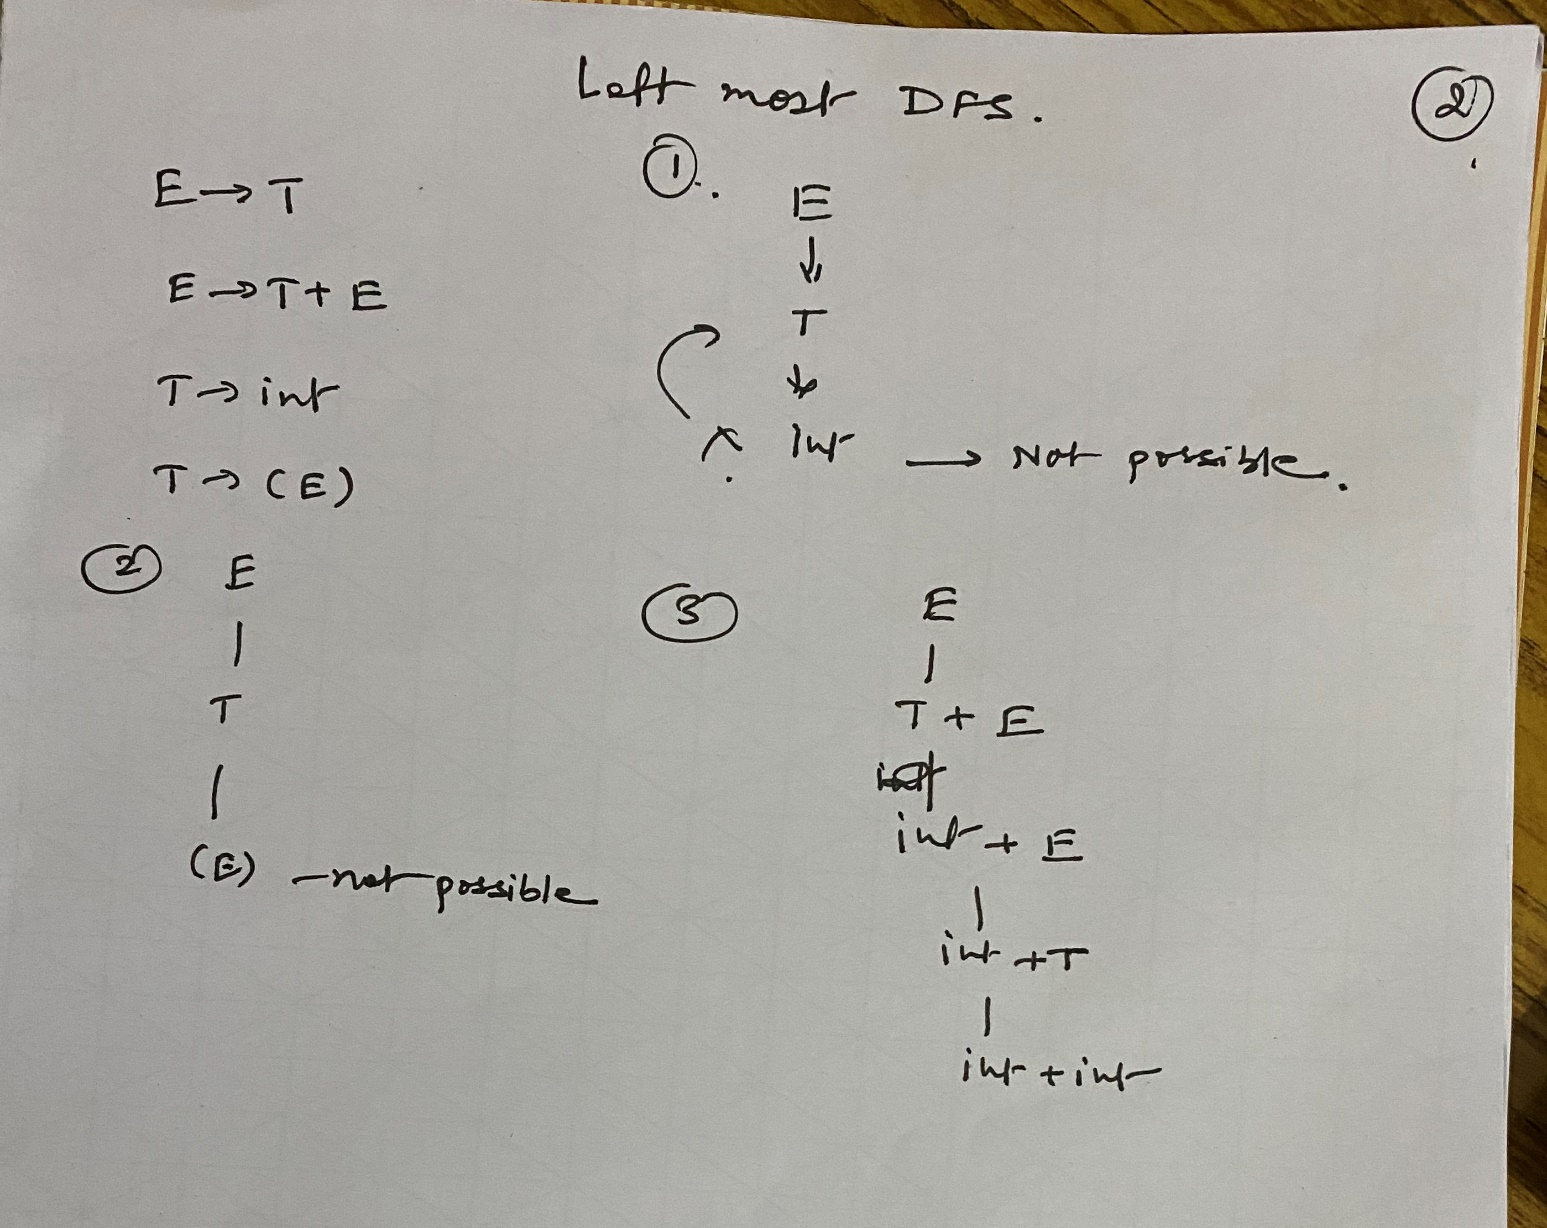 Left most DFS.
②
E → T
E → T + E
T → int
T → (E)
①.
E
↓
T
↓
x Int → Not possible.
②
E
|
T
|
(E) - not possible
③
E
|
T + E
int + E
|
int + T
|
int + int